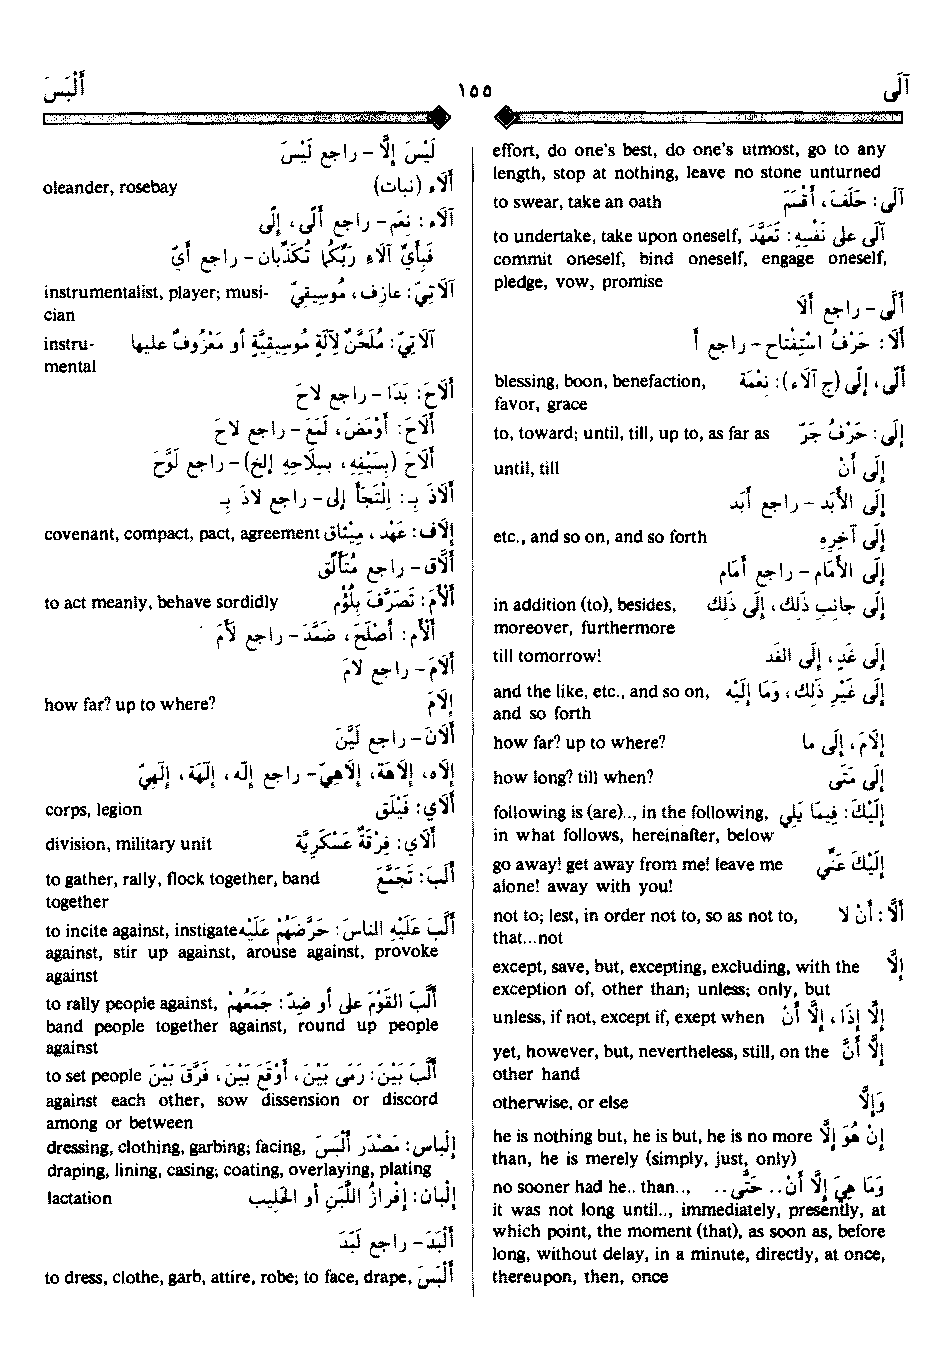 آلَى
١٥٥
أَلْبَسَ
effort, do one's best, do one's utmost, go to any
length, stop at nothing, leave no stone unturned
to swear, take an oath آلَى : حَلَفَ، أَقْسَمَ
to undertake, take upon oneself, آلَى على نَفْسِهِ : تَعَهَّدَ
commit oneself, bind oneself, engage oneself,
pledge, vow, promise
أَلَّى - راجع أَلاَ
أَلاَ : حَرْفُ اسْتِفْتَاح - راجع أ
blessing, boon, benefaction, أَلًى، إلًى (ج آلاء) : نِعْمَة
favor, grace
to, toward; until, till, up to, as far as إلَى : حَرْفُ جَرّ
until, till إلَى أَنْ
إلَى الأَبَد - راجع أَبَد
etc., and so on, and so forth إلَى آخِرِهِ
إلَى الأَمَام - راجع أَمَام
in addition (to), besides, إلَى جانِبِ ذَلِكَ، إلَى ذَلِكَ
moreover, furthermore
till tomorrow! إلَى غَدٍ، إلَى الغَد
and the like, etc., and so on, إلَى غَيْرِ ذَلِكَ، وَمَا إلَيْهِ
and so forth
how far? up to where? إلاَمَ، إلَى ما
how long? till when? إلَى مَتَى
following is (are).., in the following, إلَيْكَ : فِيمَا يَلِي
in what follows, hereinafter, below
go away! get away from me! leave me إلَيْكَ عَنِّي
alone! away with you!
not to; lest, in order not to, so as not to, أَلاَّ : أَنْ لا
that...not
except, save, but, excepting, excluding, with the إلاَّ
exception of, other than; unless; only, but
unless, if not, except if, exept when إلاَّ إذَا، إلاَّ أَنْ
yet, however, but, nevertheless, still, on the إلاَّ أَنَّ
other hand
otherwise, or else وَإلاَّ
he is nothing but, he is but, he is no more إنْ هُوَ إلاَّ
than, he is merely (simply, just, only)
no sooner had he.. than.., وَمَا هِيَ إلاَّ أَنْ .. حَتَّى ..
it was not long until.., immediately, presently, at
which point, the moment (that), as soon as, before
long, without delay, in a minute, directly, at once,
thereupon, then, once
لَيْسَ إلاَّ - راجع لَيْسَ
oleander, rosebay أَلاَء (نبات)
آلاَء : نِعَم - راجع أَلًى، إلًى
فَبِأَيِّ آلاَءِ رَبِّكُمَا تُكَذِّبَان - راجع أَيّ
instrumentalist, player; musi- آلاَتِيّ : عازِف، مُوسِيقِيّ
cian
instru- آلاَتِيّ : مُلَحَّنٌ لِآلَةٍ مُوسِيقِيَّةٍ أو مَعْزُوفٌ عليها
mental
أَلاَحَ : بَدَا - راجع لاَحَ
أَلاَحَ : أَوْمَضَ، لَمَعَ - راجع لاَحَ
أَلاَحَ (بِسَيْفِهِ، بِسِلاَحِهِ إلخ) - راجع لَوَّحَ
أَلاَذَ بِـ : اِلْتَجَأَ إلى - راجع لاَذَ بِـ
covenant, compact, pact, agreement إلاَف : عَهْد، مِيْثَاق
أَلاَّق - راجع مُتَأَلِّق
to act meanly, behave sordidly أَلْأَمَ : تَصَرَّفَ بِلُؤْم
أَلْأَمَ : أَصْلَحَ، ضَمَّدَ - راجع لأَمَ
أَلاَمَ - راجع لاَمَ
how far? up to where? إلاَمَ
أَلاَنَ - راجع لَيَّنَ
إلاَه، إلاَهَة، إلاَهِيّ - راجع إلَه، إلَهَة، إلَهِيّ
corps, legion أَلاَي : فَيْلَق
division, military unit أَلاَي : فِرْقَةٌ عَسْكَرِيَّة
to gather, rally, flock together, band أَلَبَ : تَجَمَّعَ
together
to incite against, instigate أَلَّبَ عَلَيْهِ الناسَ : حَرَّضَهُمْ عَلَيْهِ
against, stir up against, arouse against, provoke
against
to rally people against, أَلَّبَ القَوْمَ على أو ضِدَّ : جَمَعَهُمْ
band people together against, round up people
against
to set people أَلَّبَ بَيْنَ : رَمَى بَيْنَ، أَوْقَعَ بَيْنَ، فَرَّقَ بَيْنَ
against each other, sow dissension or discord
among or between
dressing, clothing, garbing; facing, إلْبَاس : مَصْدَر أَلْبَسَ
draping, lining, casing; coating, overlaying, plating
lactation إلْبَان : إفْرَازُ اللَّبَنِ أو الحَلِيب
أَلْبَدَ - راجع لَبَدَ
to dress, clothe, garb, attire, robe; to face, drape, أَلْبَسَ